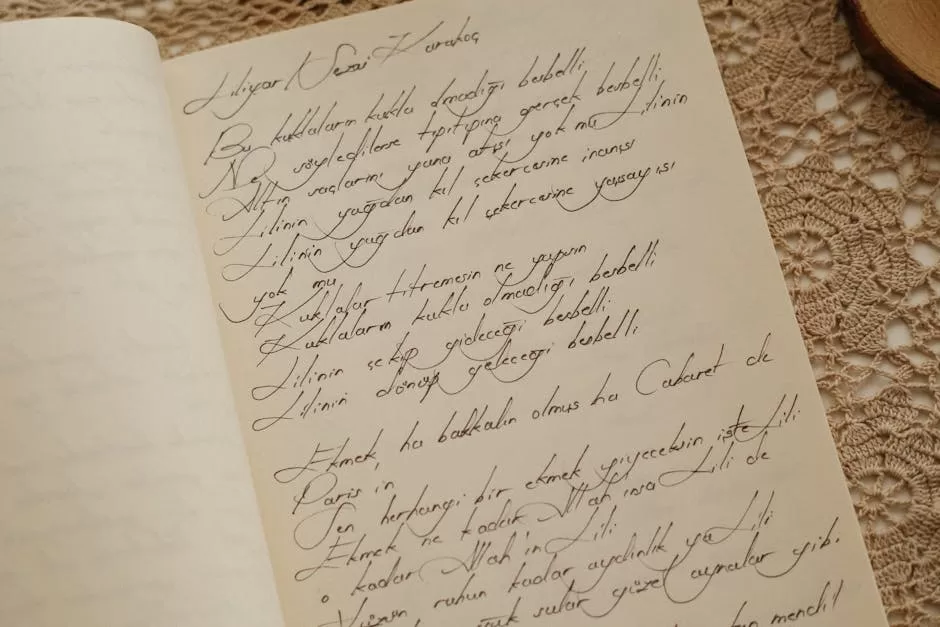 Liliyar Sezai Karakoç
Bu kuklaların kukla olmadığı besbelli
Ne söyledilerse tıpıtıpına gerçek besbelli
Altın saçlarını yana atışı yok mu Lilinin
Lilinin yağdan kıl çekercesine inanışı
Lilinin yağdan kıl çekercesine yaşayışı
yok mu
Kuklalar titremesin ne yapsın
Kuklaların kukla olmadığı besbelli
Lilinin çekip gideceği besbelli
Lilinin dönüp geleceği besbelli
Ekmek, ha bakkalın olmuş ha Cabaret de
Paris in
Sen herhangi bir ekmek yiyeceksin işte Lili
Ekmek ne kadar Allah ınsa Lili de
o kadar Allah'ın Lili
Yüzün ruhun kadar aydınlık ya Lili
sular güzel aynalar gib.
mendil